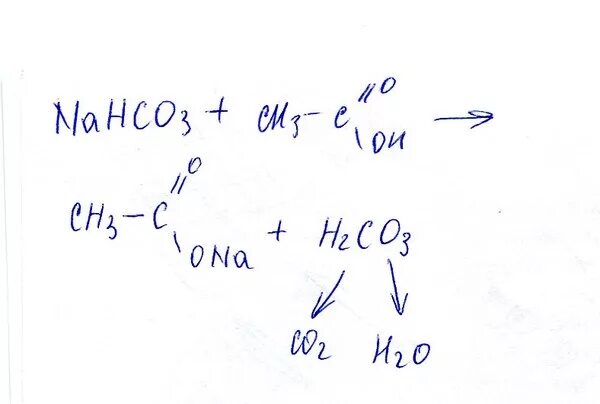 NaHCO3 + CH3-C=O\OH →
CH3-C=O\ONa + H2CO3
CO2 H2O